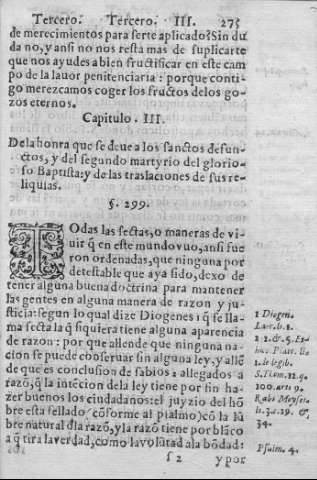 Tercero. Tercero. III. 275
de merecimientos para serte aplicado? Sin du
da no, y ansi no nos resta mas de suplicarte
que nos ayudes a bien fructificar en este cam
po de la lauor penitenciaria: porque conti-
go merezcamos coger los fructos de los go-
zos eternos.
Capitulo. III.
De la honra que se deue a los sanctos defun-
ctos, y del segundo martyrio del glorio-
so Baptista: y de las traslaciones de sus re-
liquias.
§. 299.
TOdas las sectas, o maneras de vi-
uir q̃ en este mundo vuo, ansi fue
ron ordenadas, que ninguna por
detestable que aya sido, dexo de
tener alguna buena doctrina para mantener
las gentes en alguna manera de razon y ju-
sticia: segun lo qual dize Diogenes: q̃ se lla
ma secta la q̃ siquiera tiene alguna aparencia
de razon: por que allende que ninguna na-
cion se puede conseruar sin alguna ley, y allẽ
de que es conclusion de sabios: allegados a
razõ, q̃ la intẽcion de la ley tiene por fin ha-
zer buenos los ciudadanos: el juyzio del hõ
bre esta sellado (cõforme al psalmo) cõ la lũ
bre natural dla razõ, y la razõ tiene por blãco
a q̃ tira la verdad, como la volũtad a la bõdad:
s 2 y por
1 Diogen.
Laer. li. 1.
2 2. & 5. Et-
hic. Plat. li.
1. de legib.
S. Thom. 12. q.
100. arti 9.
Rabi Moyses.
li. 3. c. 29. &
34.
Psalm. 4.